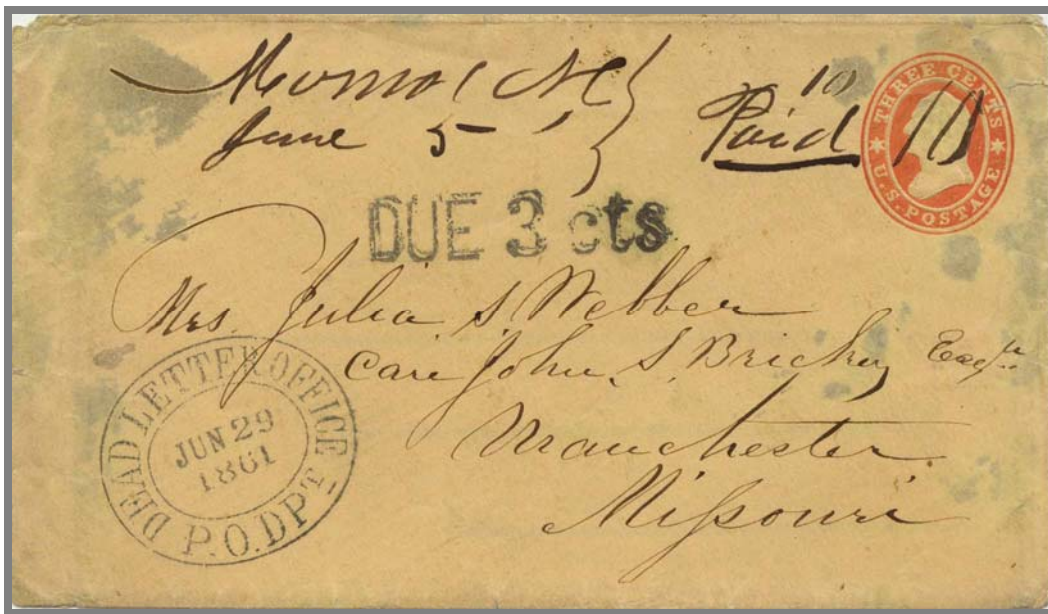 June 5
Paid 10
10
THREE CENTS
U.S. POSTAGE
DUE 3 cts
Mrs. Julia S Webber
Care John S. Brickey Esqr.
Manchester
Missouri
DEAD LETTER OFFICE
JUN 29
1861
P.O.DPT.